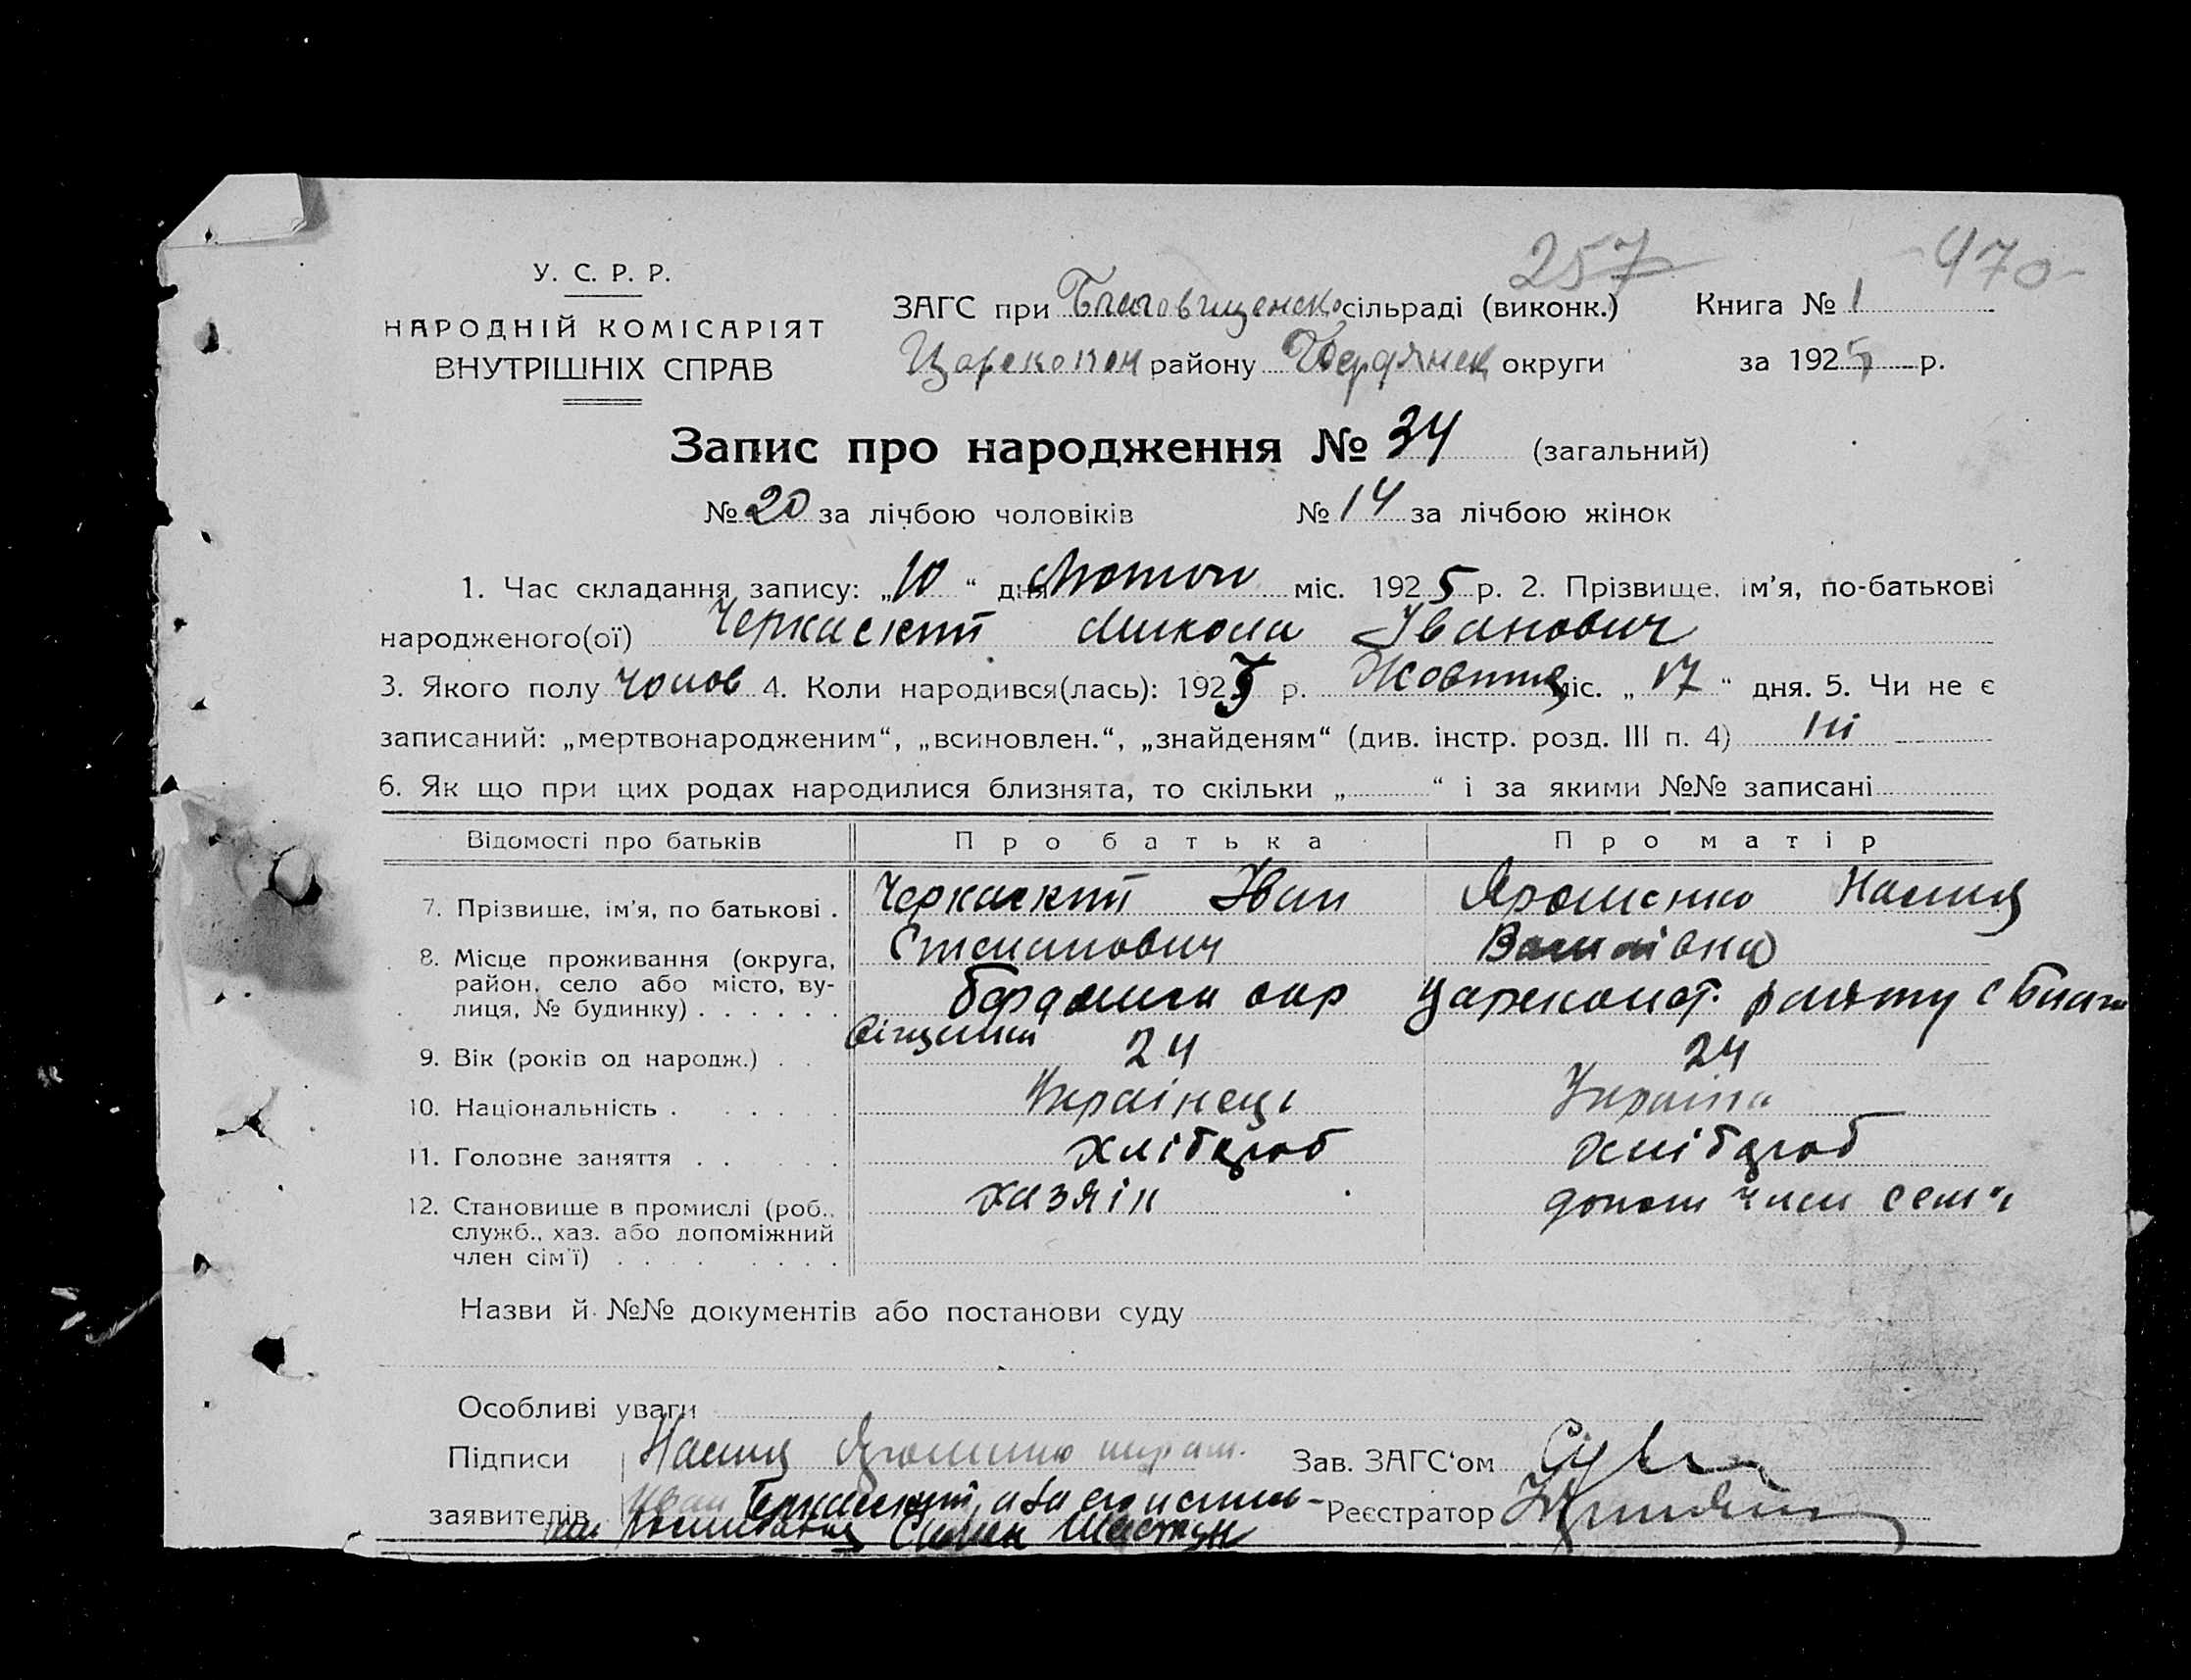 257 -970-
У. С. Р. Р.
НАРОДНІЙ КОМІСАРІЯТ
ВНУТРІШНІХ СПРАВ
ЗАГС при Благовищенско сільраді (виконк.) Книга № 1
Царекон район у Бердянск округи за 1925 р.
Запис про народження № 34 (загальний)
№ 20 за лічбою чоловіків № 14 за лічбою жінок
1. Час складання запису: „10“ дня Лютого міс. 1925 р. 2. Прізвище, ім'я, по-батькові
народженого(ої) Черкаский Микола Іванович
3. Якого полу чолов 4. Коли народився(лась): 192 р. Жовтня міс. „17“ дня. 5. Чи не є
записаний: „мертвонародженим“, „всиновлен.“, „знайденям“ (див. інстр. розд. III п. 4) ні
6. Як що при цих родах народилися близнята, то скільки „ “ і за якими №№ записані
Відомості про батьків Про батька Про матір
7. Прізвище, ім'я, по батькові . Черкаский Іван Ярошенко
Степанович
8. Місце проживання (округа, район, село або місто, вулиця, № будинку) . . . . . . окр Цареконст. району с Благо
віщинка
9. Вік (років од народж.) . . 24 24
10. Національність . . . . . . Українець Українка
11. Головне заняття . . . . . Хлібороб Хлібороб
12. Становище в промислі (роб., служб., хаз. або допоміжний член сім'ї) . . . . . . . . хазяін допом член семі
Назви й №№ документів або постанови суду
Особливі уваги
Підписи Зав. ЗАГС'ом
заявителів Іван Черкаский Реєстратор